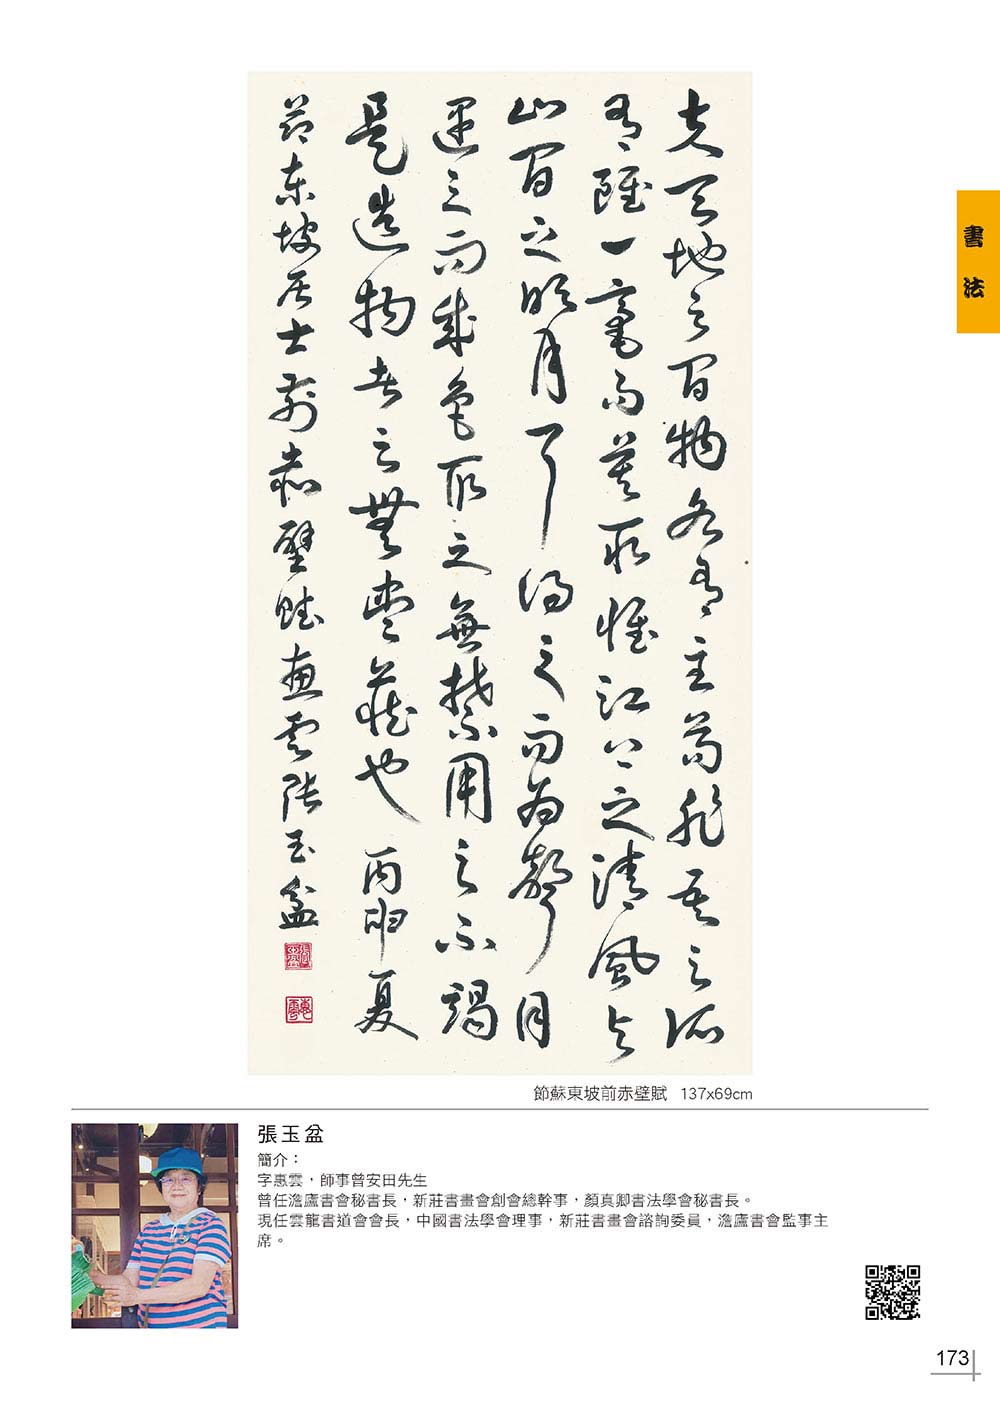 書法
夫天地之間物各有主苟非吾之所
有雖一毫而莫取惟江上之清風與
山間之明月耳得之而為聲目
遇之而成色取之無禁用之不竭
是造物者之無盡藏也 丙申夏
節東坡居士前赤壁賦惠雲張玉盆
惠雲
節蘇東坡前赤壁賦 137x69cm
張玉盆
簡介：
字惠雲，師事曾安田先生
曾任澹廬書會秘書長，新莊書畫會創會總幹事，顏真卿書法學會秘書長。
現任雲龍書道會會長，中國書法學會理事，新莊書畫會諮詢委員，澹廬書會監事主
席。
173